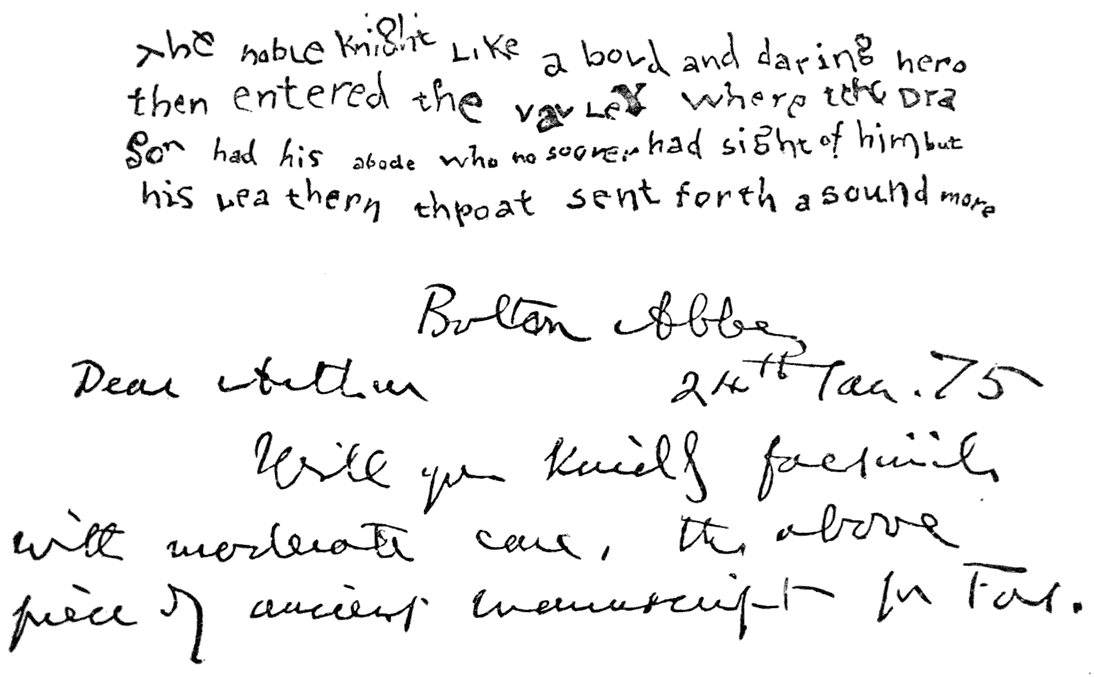 The noble Knight Like a bold and daring hero
then entered the valley where the Dra
gon had his abode who no sooner had sight of him but
his leathern throat sent forth a sound more
Bolton Abbey
Dear Arthur 24th Jan. 75
Will you kindly facsimile
with moderate care, the above
piece of ancient manuscript for